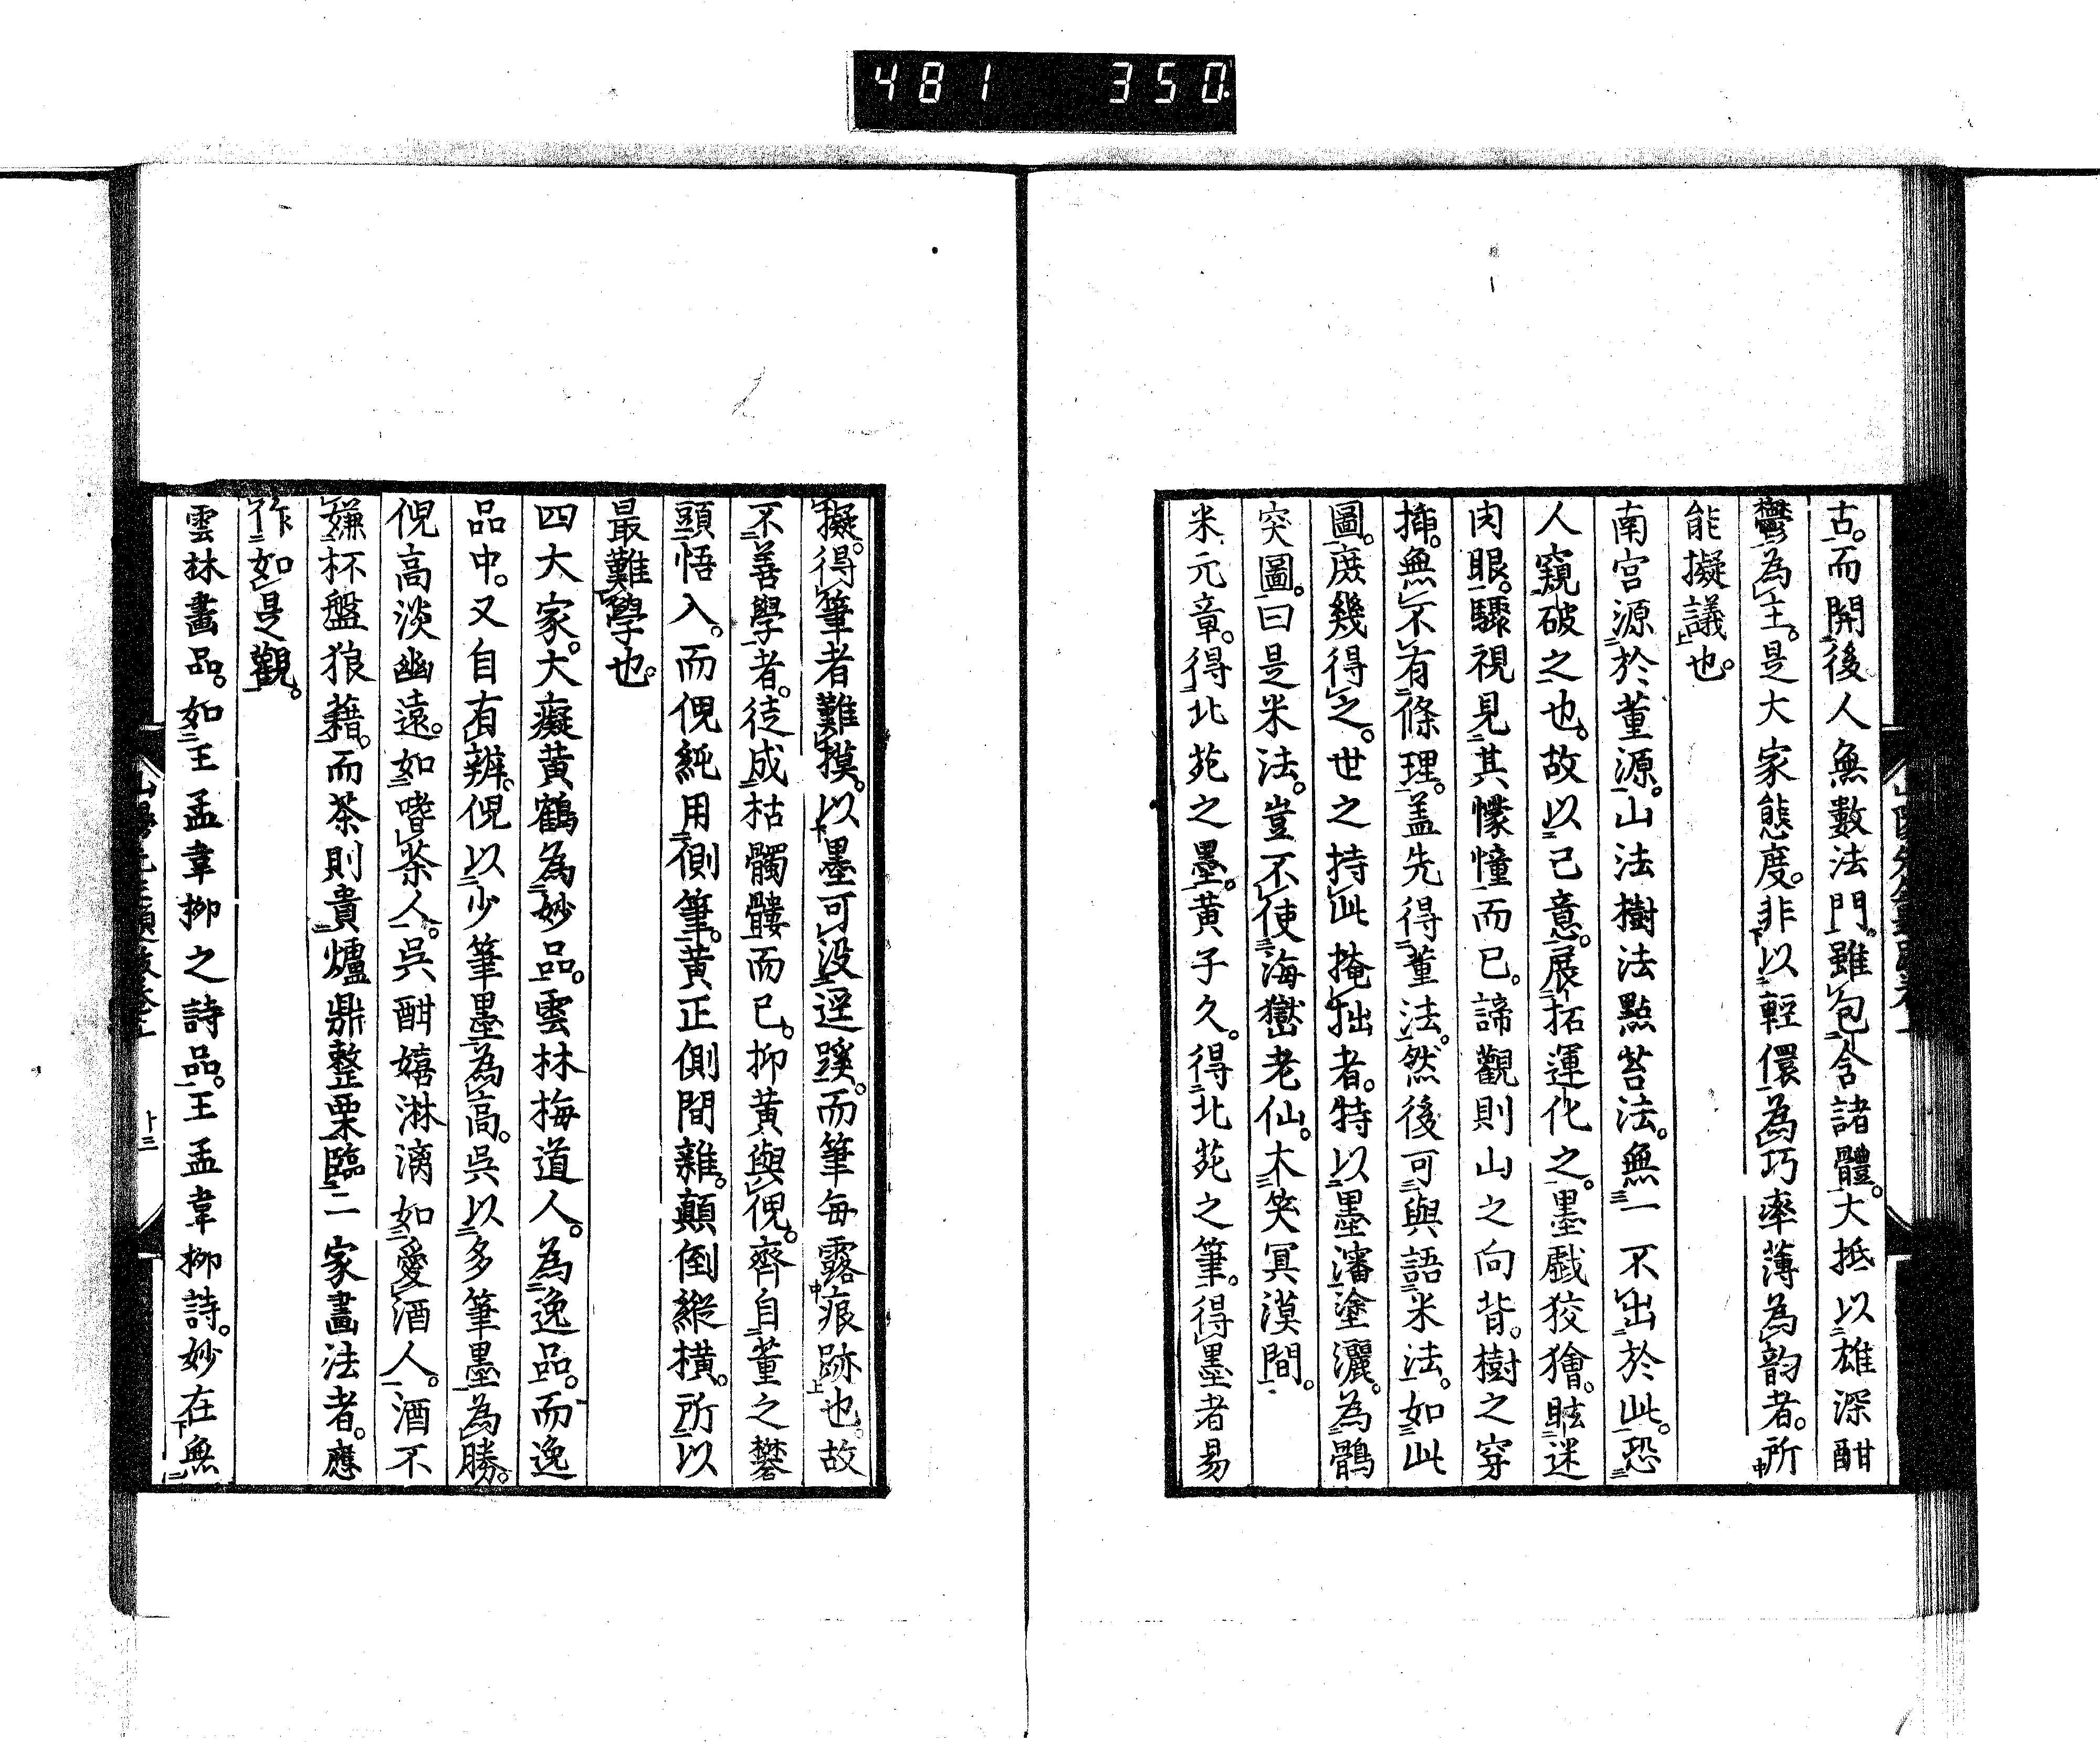 481 350
古。而開後人無數法門。雖包含諸體。大抵以雄深酣
鬱為主。是大家態度。非以輕儇為巧率薄為韵者。所
能擬議也。
南宮源於董源。山法樹法點苔法。無一不出於此。恐
人窺破之也。故以己意。展拓運化之。墨戲狡獪。眩迷
肉眼。驟視見其懞憧而已。諦觀則山之向背。樹之穿
揷。無不有條理。盖先得董法。然後可與語米法。如此
圖。庶幾得之。世之持此掩拙者。特以墨瀋塗灑。為鶻
突圖。曰是米法。豈不使海嶽老仙。大笑冥漠間。
米元章。得北苑之墨。黄子久。得北苑之筆。得墨者易
擬。得筆者難摸。以墨可没逕蹊。而筆每露痕跡也。故
不善學者。徒成枯髑髏而已。抑黄與倪。齊自董之礬
頭悟入。而倪純用側筆。黄正側間雜。顛倒縱橫。所以
最難學也。
四大家。大癡黄鶴為妙品。雲林梅道人。為逸品。而逸
品中。又自有辨。倪以少筆墨為高。呉以多筆墨為勝。
倪高淡幽遠。如嗜茶人。呉酣嬉淋漓如愛酒人。酒不
嫌杯盤狼藉。而茶則貴爐鼎整栗臨二家畫法者。應
作如是觀。
雲林畫品。如王孟韋栁之詩品。王孟韋栁詩。妙在無
十二